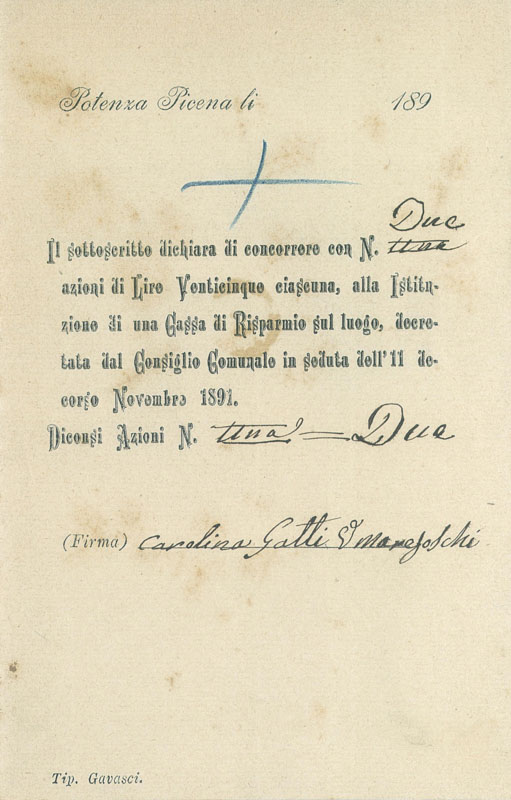 Potenza Picena li 189
Due
Il sottoscritto dichiara di concorrere con N. una
azioni di Lire Venticinque ciascuna, alla Istitu-
zione di una Cassa di Risparmio sul luogo, decre-
tata dal Consiglio Comunale in seduta dell'11 de-
corso Novembre 1891.
Diconsi Azioni N. una = Due
(Firma) Carolina Gatti
Tip. Gavasci.